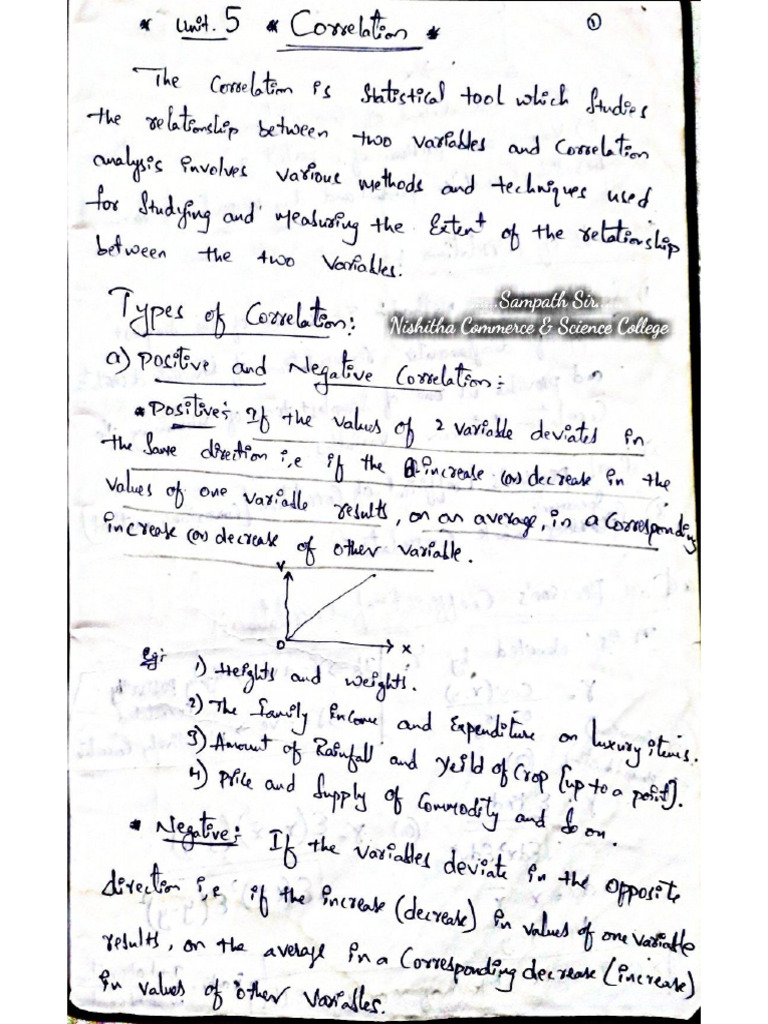 * Unit. 5 * Correlation * ①
The Correlation is Statistical tool which Studies
the relationship between two variables and Correlation
analysis involves various methods and techniques used
for Studying and measuring the Extent of the relationship
between the two variables.
.....Sampath Sir.....
Nishitha Commerce & Science College
Types of Correlation:
a) Positive and Negative Correlation:
* Positive: If the values of 2 variable deviates in
the Same direction i,e if the increase (or) decrease in the
values of one variable results, on an average, in a Corresponding
increase (or) decrease of other variable.
Y
O X
Eg:
1) Heights and weights.
2) The family income and Expenditure on luxury items.
3) Amount of Rainfall and yeild of Crop (up to a point).
4) Price and Supply of Commodity and so on.
* Negative: If the variables deviate in the opposite
direction i,e if the increase (decrease) in values of one variable
results, on the average in a Corresponding decrease (increase)
in values of other variables.